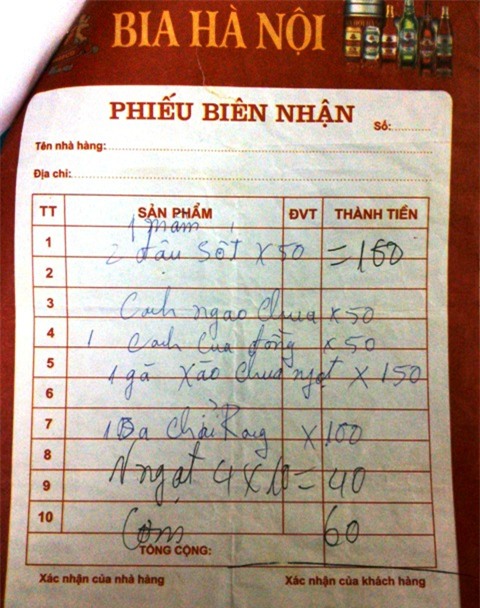 BIA HÀ NỘI
PHIẾU BIÊN NHẬN
Số:
Tên nhà hàng:
Địa chỉ:
TT SẢN PHẨM ĐVT THÀNH TIỀN
1
2 đâu Sốt x 50 =
2
3
Canh ngao chua x 50
4
1 Canh cua đồng x 50
5
1 gà xào chua ngọt x 150
6
7
x 100
8
N ngọt 4 x 10 = 40
9
10
Cơm 60
TỔNG CỘNG:
Xác nhận của nhà hàng Xác nhận của khách hàng